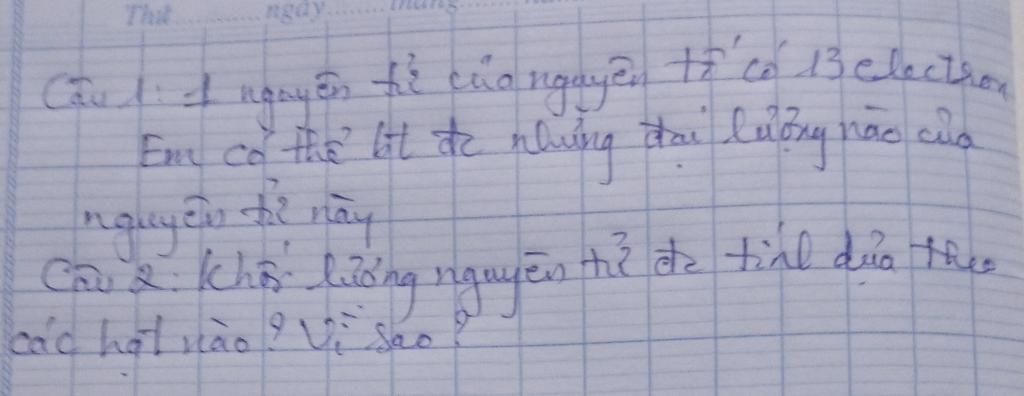 Thứ ngày tháng
Câu 1: 1 nguyên tử của nguyên tố có 13 electron
Em có thể bít đc những đại lượng nào của
nguyên tử này
Câu 2: Khối lượng nguyên tử đc tính dựa theo
các hạt nào? Vì sao?